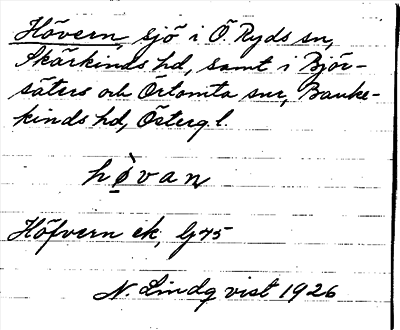 Hövern, sjö i Ö. Ryds sn,
Skärkinds hd, samt i Björ-
säters och Örtomta snr, Banke-
kinds hd, Östergl.
hø̀van
Höfvern ek,
N. Lindqvist 1926